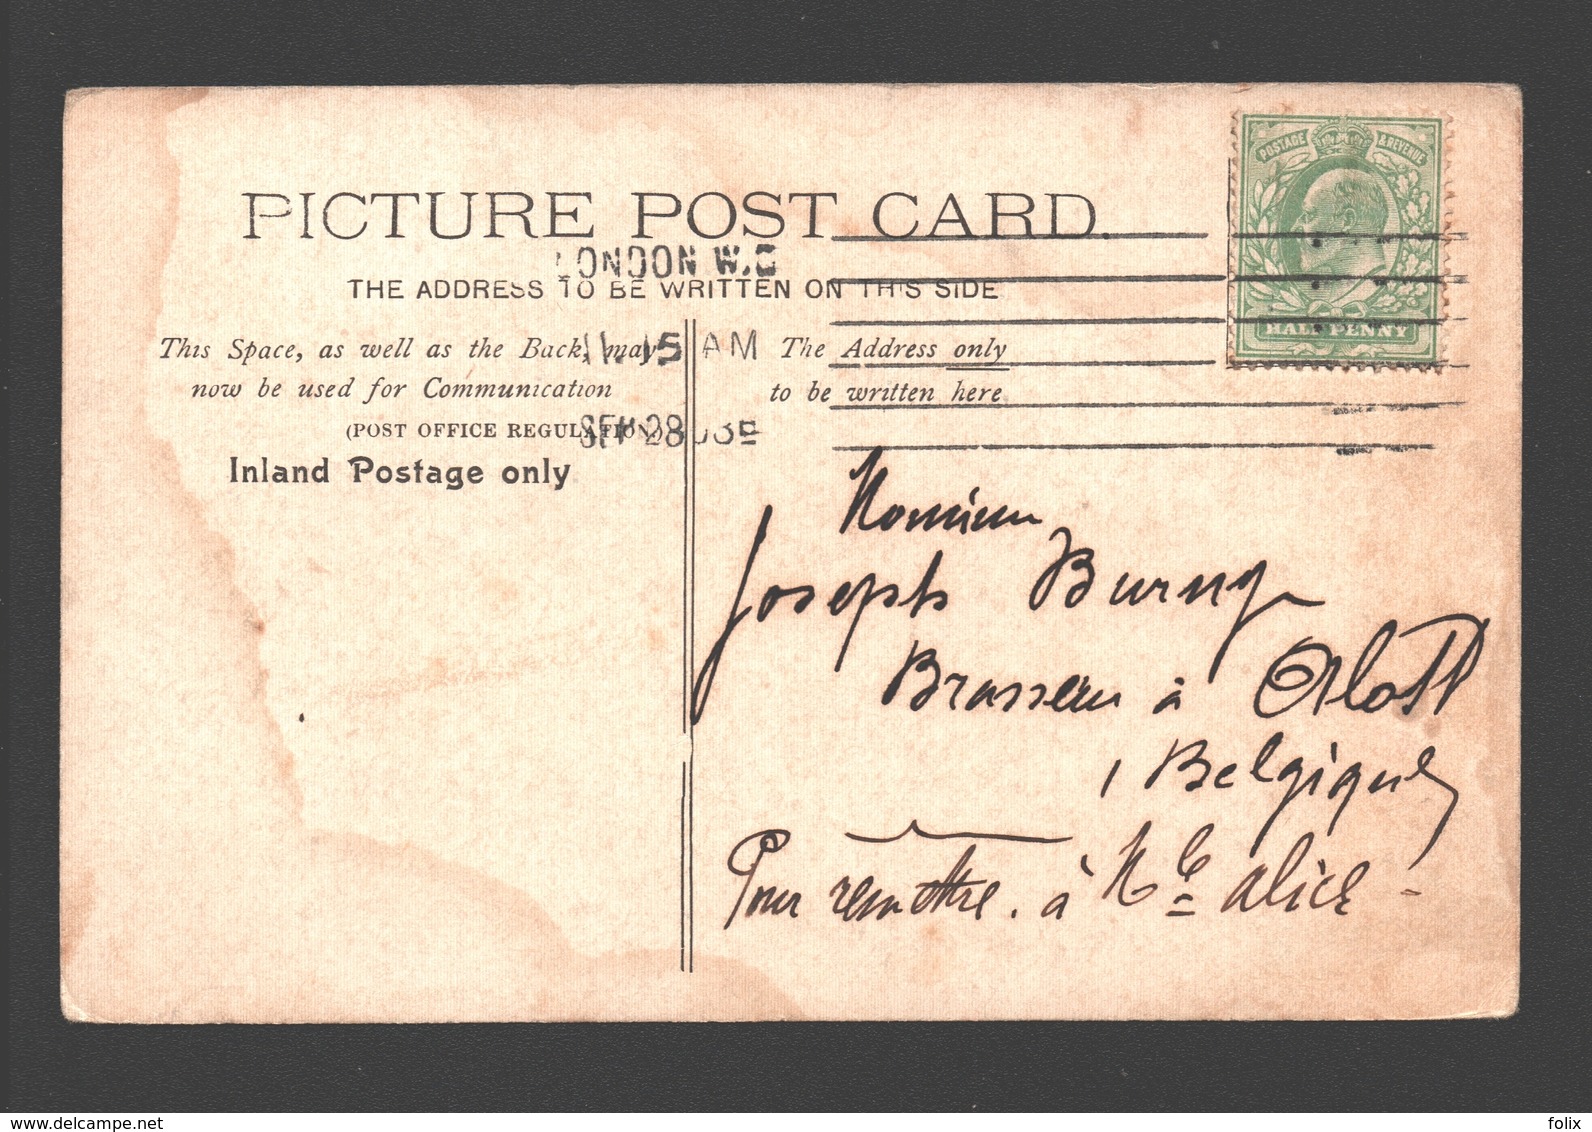 PICTURE POST CARD.
LONDON W.C
THE ADDRESS TO BE WRITTEN ON THIS SIDE
This Space, as well as the Back, may
now be used for Communication
(POST OFFICE REGULATION)
Inland Postage only
11.15 AM
SEP 28
The Address only
to be written here
POSTAGE & REVENUE
HALF PENNY
Monsieur
Joseph
Brasseur à Alost
Belgique
Pour remettre à Mlle Alice
www.delcampe.net
folix